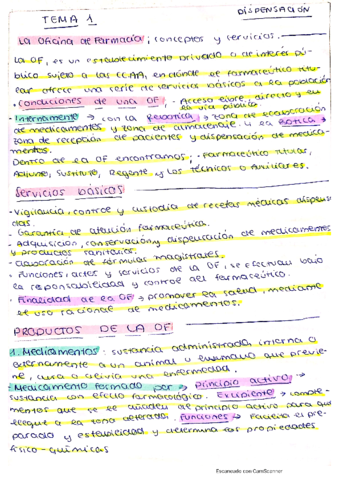 DISPENSACIÓN
TEMA 1
La Oficina de Farmacia; conceptos y servicios.
La OF, es un establecimiento privado a de interés pú-
blico sujeto a las CCAA, en dónde el farmacéutico titu-
lar ofrece una serie de servicios básicos a la población
·Condiciones de una OF; · Acceso libre, directo y en
la vía pública
Internamente → con la Rebotica → zona de elaboración
de medicamentos y zona de almacenaje. y la BOTICA →
zona de recepción de pacientes y dispensación de medica-
mentos.
Dentro de la OF encontramos; · Farmacéutico titular,
Adjunto, Sustituto, Regente y los Técnicos o Auxiliares.
Servicios básicos
· Vigilancia, control y custodia de recetas médicas dispensa-
das.
· Garantía de atención farmacéutica.
· Adquisición, conservación y dispensación de medicamentos
y productos sanitarios.
· Elaboración de fórmulas magistrales.
· Funciones, actos y servicios de la OF, se efectúan bajo
la responsabilidad y control del farmacéutico.
· Finalidad de la OF → promover la salud, mediante
el uso racional de medicamentos.
PRODUCTOS DE LA OF
1. Medicamentos: sustancia administrada, interna o
externamente a un animal o humano que previe-
ne, cura o alivia una enfermedad.
- Medicamento formado por → Principio activo →
sustancia con efecto farmacológico. Excipiente → comple-
mentos que se le añaden al principio activo para que
llegue a la zona alterada. Funciones → Facilita el pre-
parado y estabilidad y determina las propiedades
físico-químicas
Escaneado con CamScanner